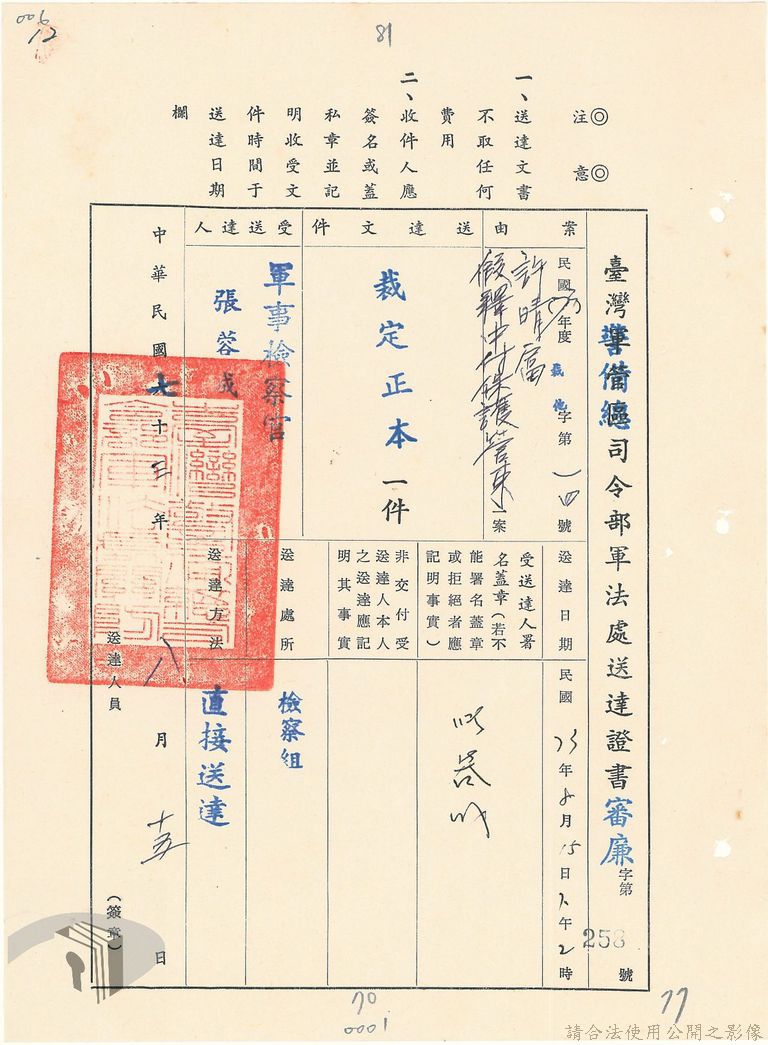 006
12
81
注意
一、送達文書
不取任何
費用
二、收件人應
簽名或蓋
私章並記
明收受文
件時間于
送達日期
欄
臺灣警備總司令部軍法處送達證書 審廉字第258號
案由
民國73年度裁他字第一四號
許晴富
假釋中付保護管束一案
送達文件
裁定正本一件
受送達人
軍事檢察官
張蓉成
送達日期
民國73年8月15日下午2時
受送達人署
名蓋章(若不
能署名蓋章
或拒絕者應
記明事實)
非交付受
送達人本人
之送達應記
明其事實
送達處所
檢察組
送達方法
直接送達
中華民國七十三年八月十五日
送達人員
(簽章)
70
0001
77
請合法使用公開之影像